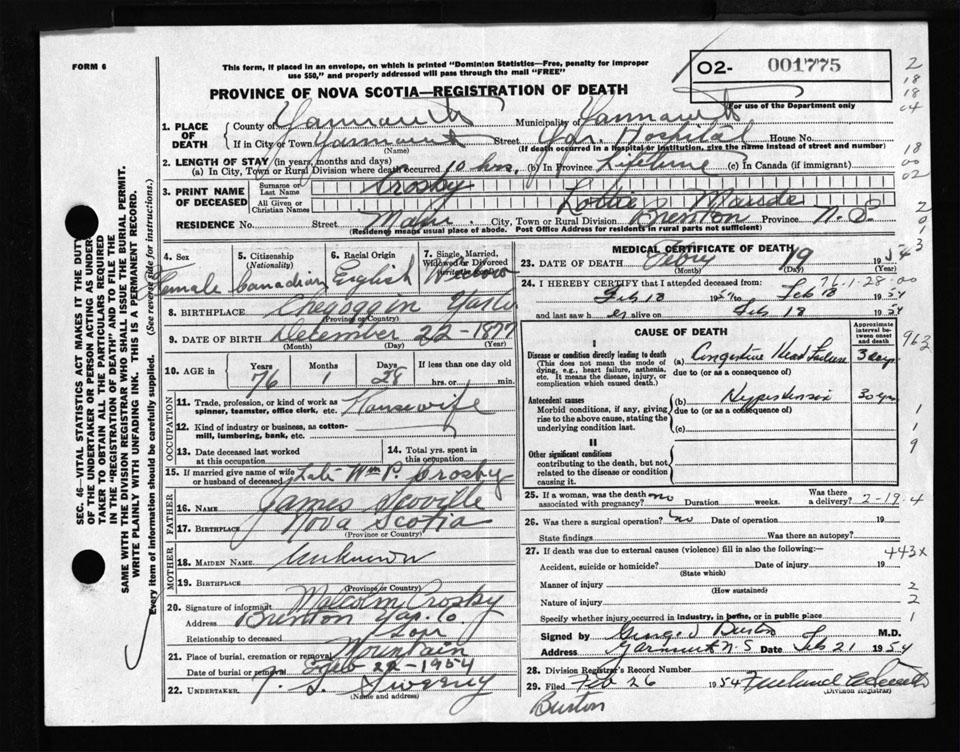 FORM 6
This form, if placed in an envelope, on which is printed "Dominion Statistics—Free, penalty for improper
use $50," and properly addressed will pass through the mail "FREE"
O2- 001775
For use of the Department only
PROVINCE OF NOVA SCOTIA—REGISTRATION OF DEATH
1. PLACE OF DEATH
County of Yarmouth Municipality of Yarmouth
If in City or Town Yarmouth Street Yar. Hospital House No.
(Name) (If death occurred in a hospital or institution, give the name instead of street and number)
2. LENGTH OF STAY (in years, months and days)
(a) In City, Town or Rural Division where death occurred 10 hrs. (b) In Province Lifetime (c) In Canada (if immigrant)
3. PRINT NAME OF DECEASED
Surname or Last Name Crosby
All Given or Christian Names Lottie Maude
RESIDENCE No. Street Main City, Town or Rural Division Brenton Province N.S.
(Residence means usual place of abode. Post Office Address for residents in rural parts not sufficient)
4. Sex Female
5. Citizenship (Nationality) Canadian
6. Racial Origin English
7. Single, Married, Widowed or Divorced
8. BIRTHPLACE
(Province or Country)
9. DATE OF BIRTH December 22 - 1877
(Month) (Day) (Year)
10. AGE in Years 76 Months 1 Days 28 If less than one day
hrs. or min.
OCCUPATION
11. Trade, profession, or kind of work as Housewife
spinner, teamster, office clerk, etc.
12. Kind of industry or business, as cotton-
mill, lumbering, bank, etc.
13. Date deceased last worked at this occupation
14. Total yrs. spent in this occupation
15. If married give name of wife Late Wm P. Crosby
or husband of deceased
FATHER
16. NAME James Scoville
17. BIRTHPLACE Nova Scotia
(Province or Country)
MOTHER
18. MAIDEN NAME Unknown
19. BIRTHPLACE
(Province or Country)
20. Signature of informant Malcolm Crosby
Address Brenton Yar. Co.
Relationship to deceased Son
21. Place of burial, cremation or removal Mountain
Date of burial or removal Feb 22 - 1954
22. UNDERTAKER Sweeny
(Name and address)
MEDICAL CERTIFICATE OF DEATH
23. DATE OF DEATH Feby 19 1954
(Month) (Day) (Year)
24. I HEREBY CERTIFY that I attended deceased from: 76-1-28-00
Feb 18 19 54 to Feb 18 19 54
and last saw h er alive on Feb 18 19 54
CAUSE OF DEATH
Approximate interval between onset and death
I
Disease or condition directly leading to death
(This does not mean the mode of dying, e.g., heart failure, asthenia, etc. It means the disease, injury, or complication which caused death.)
(a) Congestive Heart Failure 3 days
due to (or as a consequence of)
Antecedent causes
Morbid conditions, if any, giving rise to the above cause, stating the underlying condition last.
(b) Hypertension 30 yrs
due to (or as a consequence of)
(c)
II
Other significant conditions
contributing to the death, but not related to the disease or condition causing it.
25. If a woman, was the death associated with pregnancy? no Duration weeks. Was there a delivery? 2-19-4
26. Was there a surgical operation? no Date of operation 19
State findings Was there an autopsy?
27. If death was due to external causes (violence) fill in also the following:— 443x
Accident, suicide or homicide? Date of injury 19
(State which)
Manner of injury
(How sustained)
Nature of injury
Specify whether injury occurred in industry, in home, or in public place
Signed by George Burton M.D.
Yarmouth N.S Date Feb 21 1954
28. Division Registrar's Record Number
29. Filed Feb 26 1954
(Division Registrar)
Burton
SEC. 46—VITAL STATISTICS ACT MAKES IT THE DUTY
OF THE UNDERTAKER OR PERSON ACTING AS UNDER-
TAKER TO OBTAIN ALL THE PARTICULARS REQUIRED
IN THE "REGISTRATION OF DEATH" AND TO FILE THE
SAME WITH THE DIVISION REGISTRAR WHO SHALL ISSUE THE BURIAL PERMIT.
WRITE PLAINLY WITH UNFADING INK. THIS IS A PERMANENT RECORD.
Every item of information should be carefully supplied. (See reverse side for instructions.)
2
18
18
04
18
00
02
2
0
1
3
963
1
1
9
2
2
1